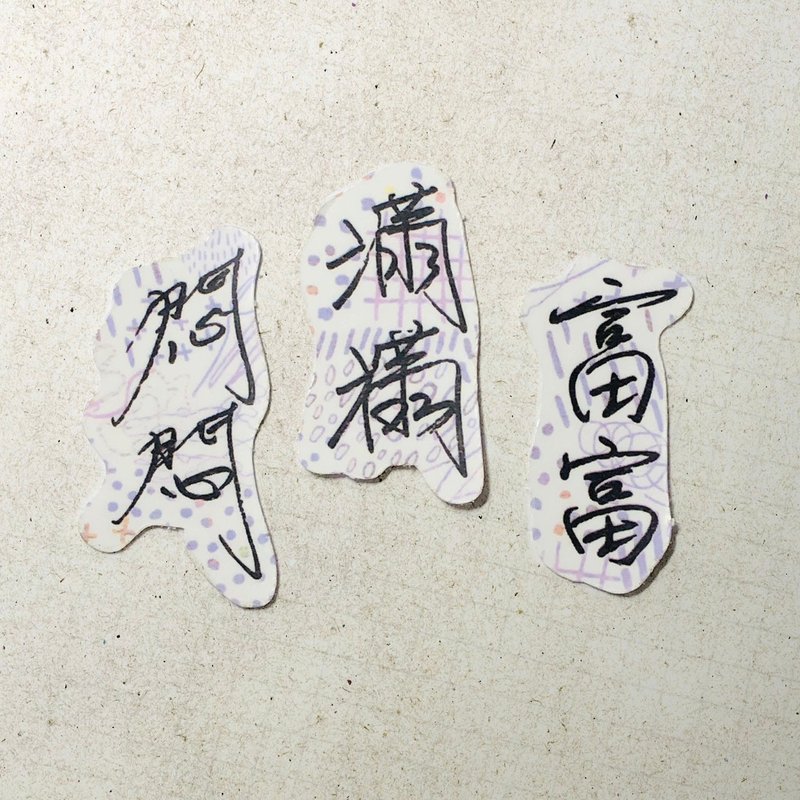 悶悶
滿滿
富富